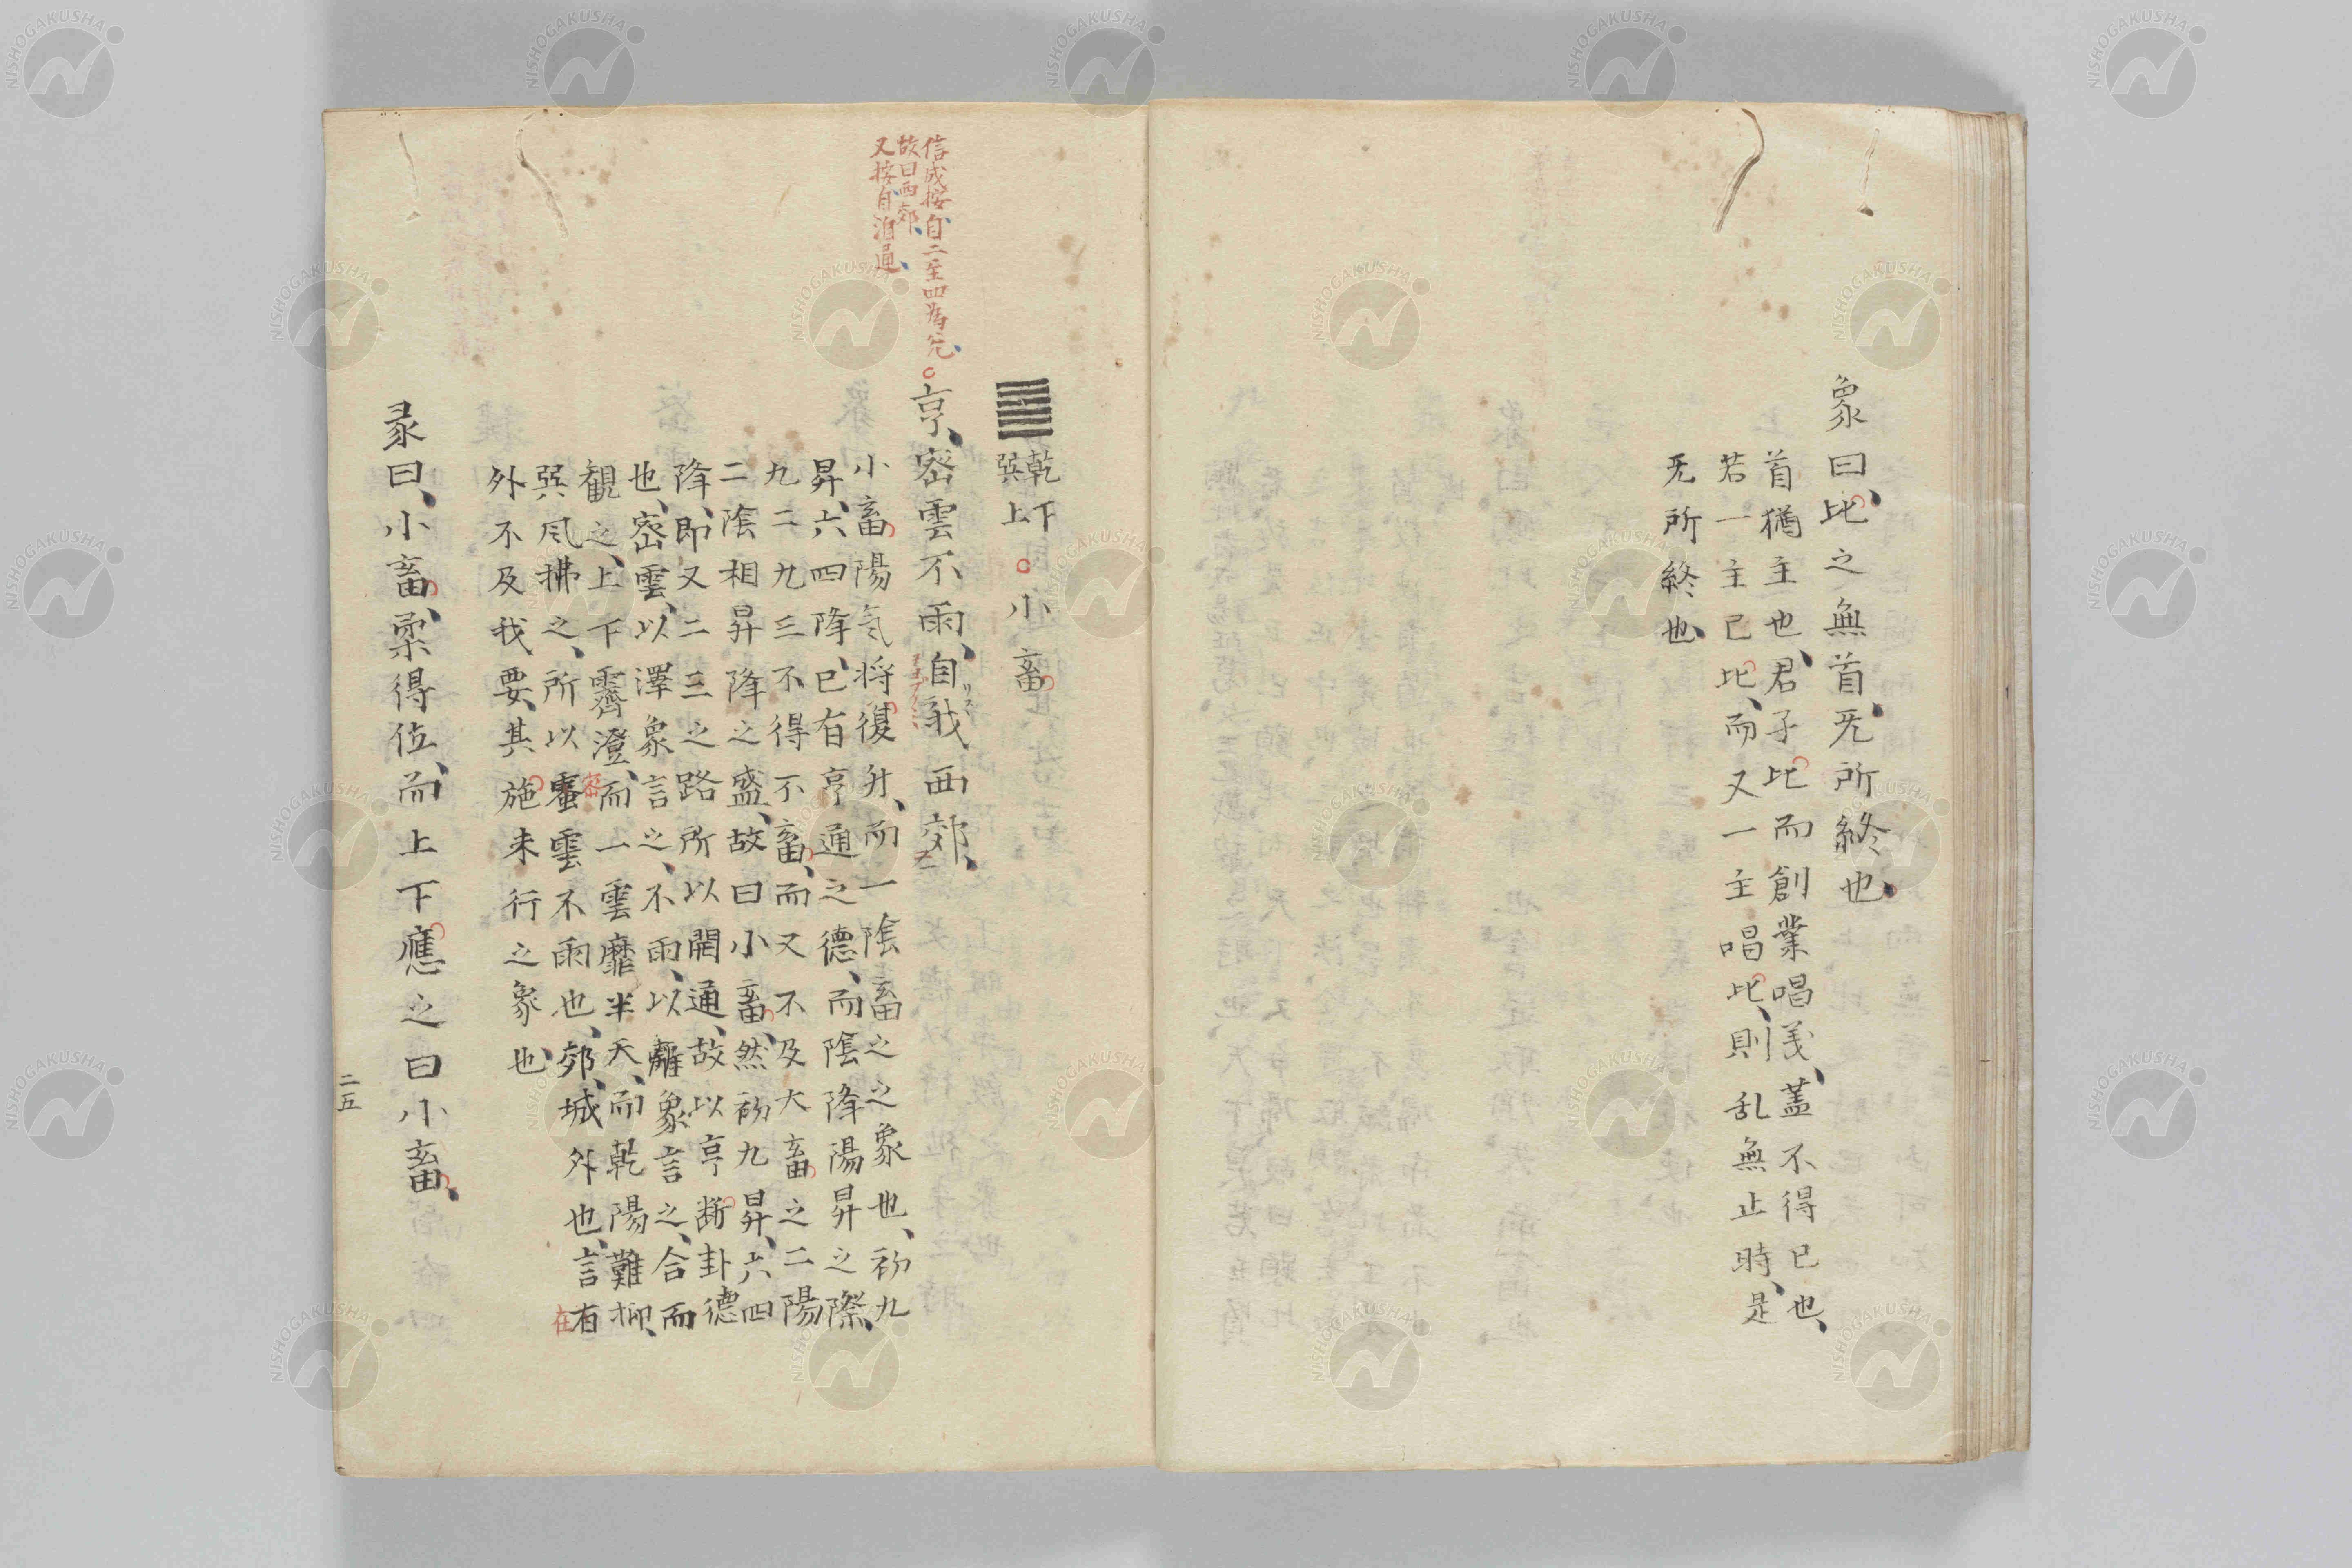 象曰、比之無首、旡所終也、
首猶主也、君子比而創業唱義、蓋不得已也、
若一主已比、而又一主唱比、則乱無止時、是
旡所終也、
乾下
巽上
小畜
信成按自二至四為兌、
故曰西郊、
又按自洎通、
亨、密雲不雨、自我西郊、
小畜陽気将復升、而一陰畜之之象也、初九
昇、六四降、已有亨通之德、而陰降陽昇之際、
九二九三不得不畜、而又不及大畜之二陽
二陰相昇降之盛、故曰小畜、然初九昇、六四
降、即又二三之路所以開通、故以亨断卦德
也、密雲、以澤象言之、不雨、以離象言之、合而
観之、上下霽澄、而一雲靡半天、而乾陽難抑、
巽風拂之、所以密雲不雨也、郊、城外也、言有
在
外不及我要、其施未行之象也、
彖曰、小畜、柔得位、而上下應之曰小畜、
二五
NISHOGAKUSHA